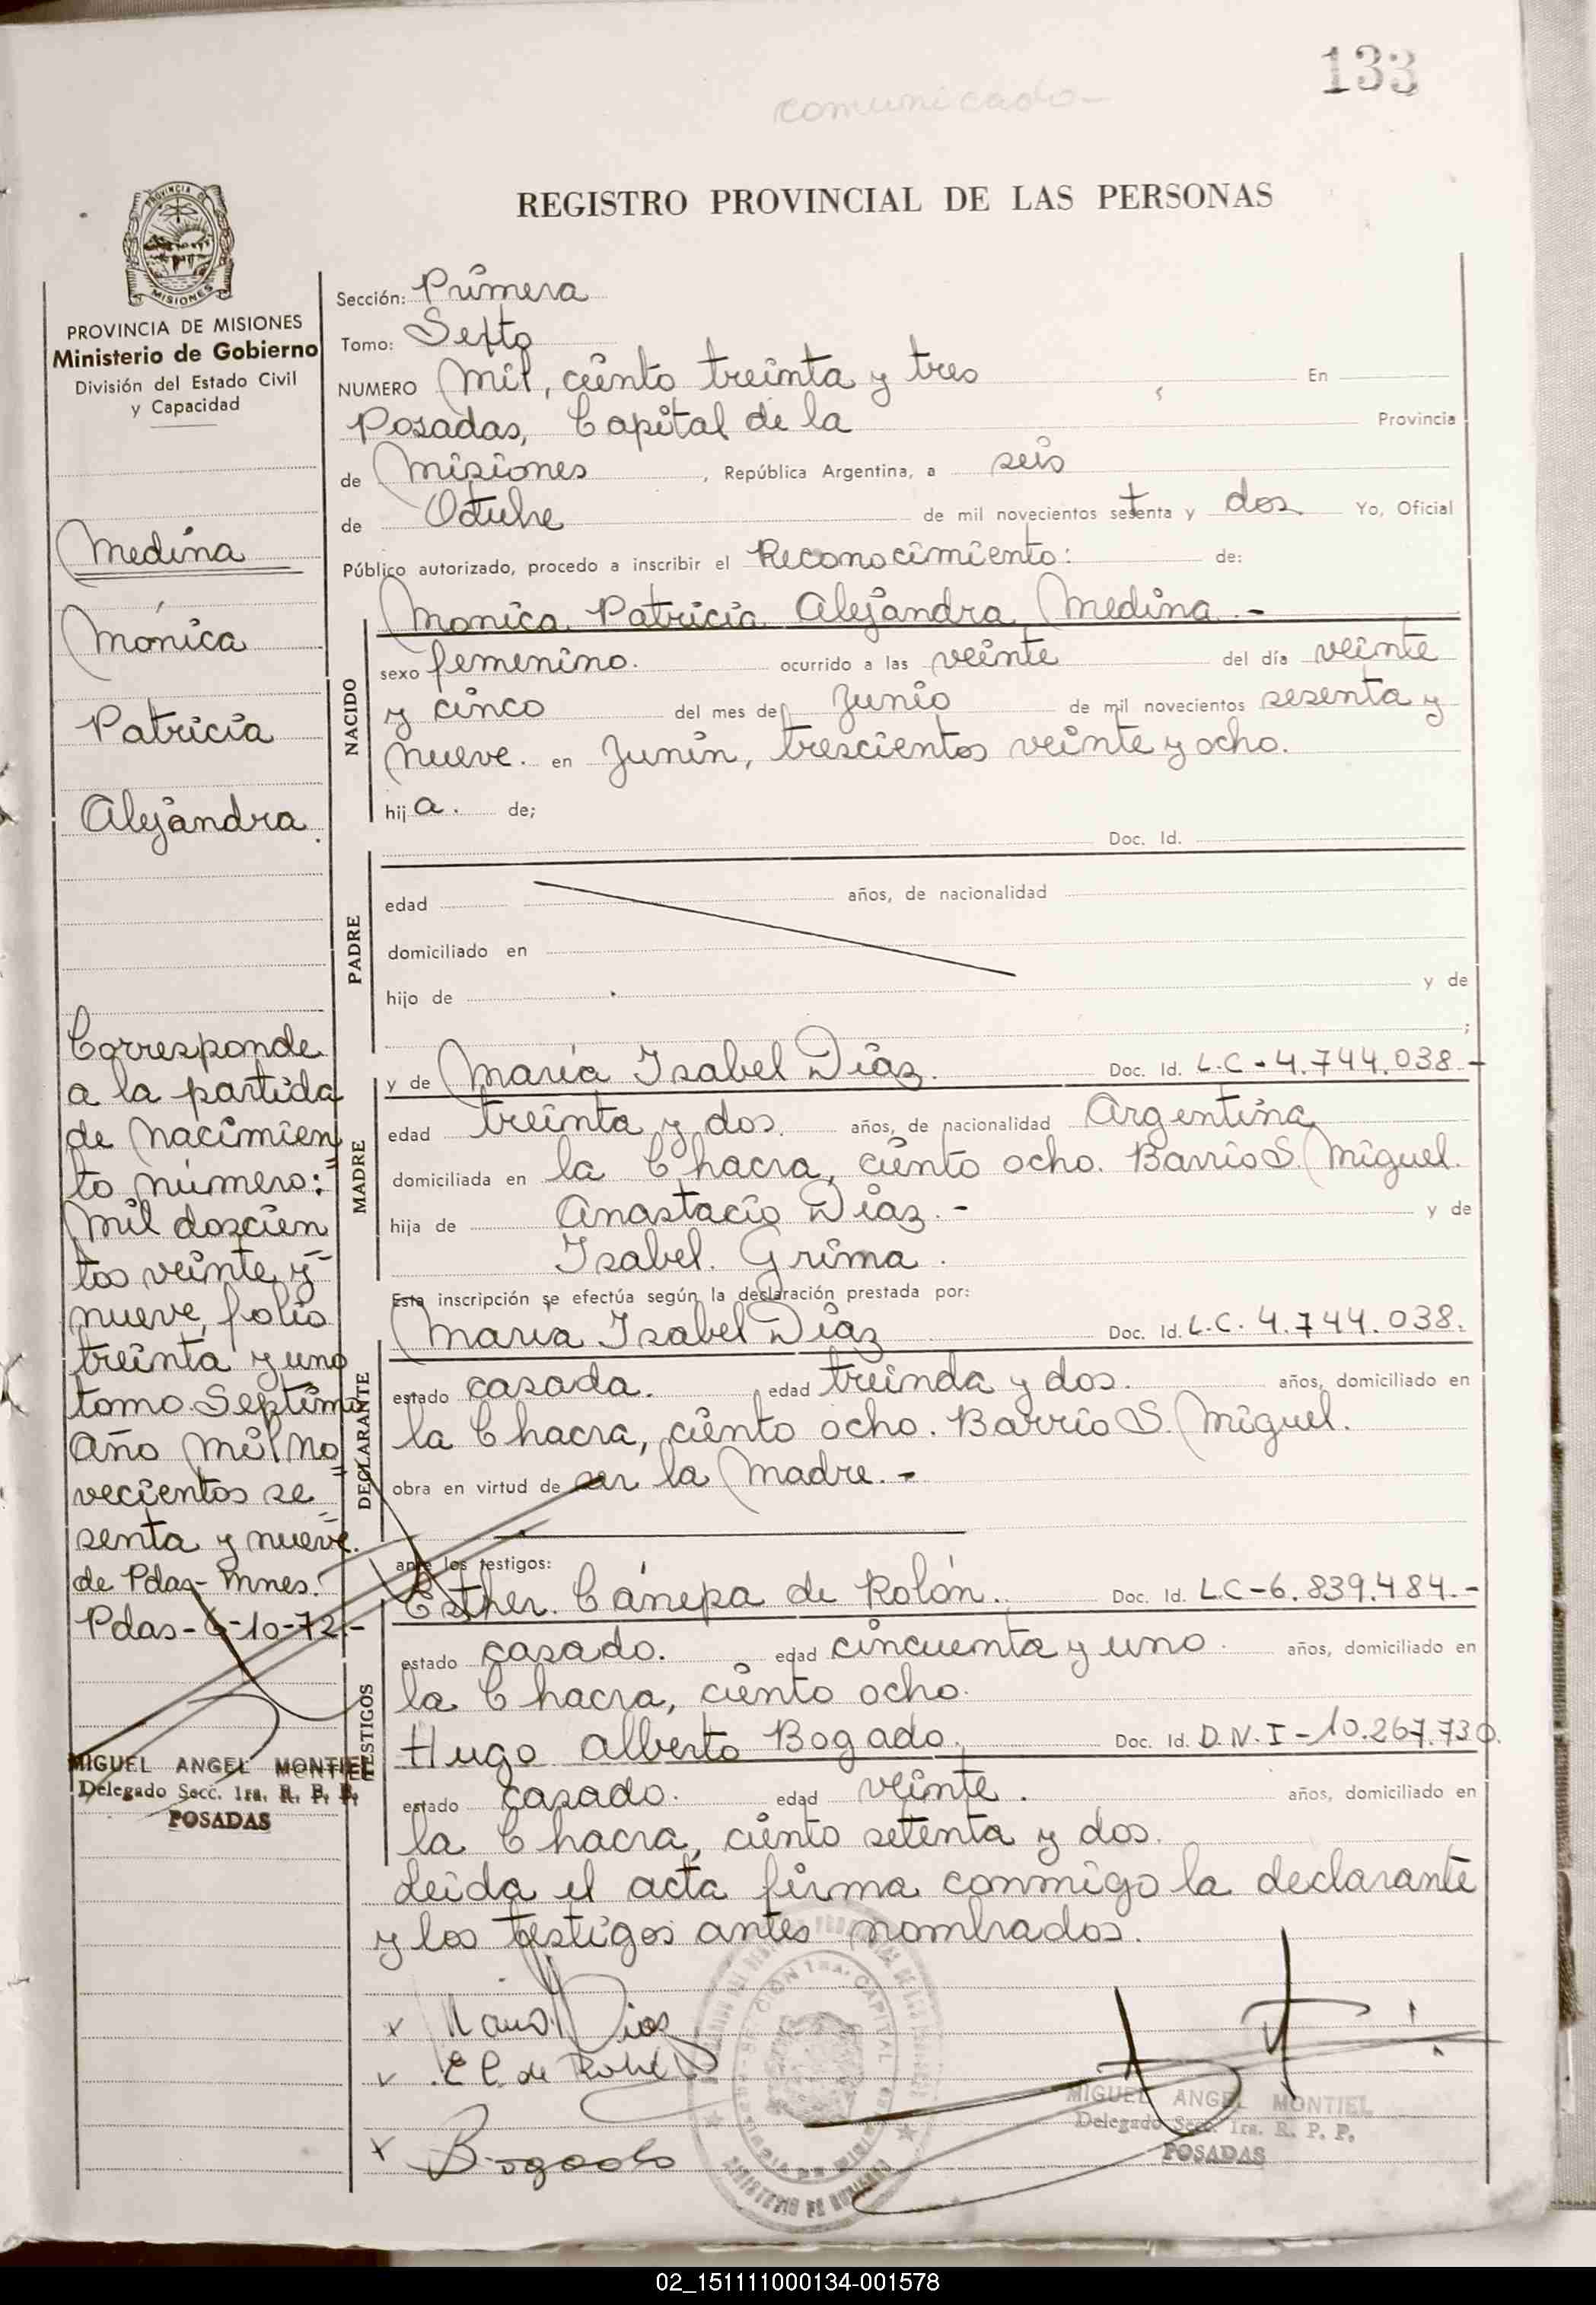 133
comunicado-
REGISTRO PROVINCIAL DE LAS PERSONAS
PROVINCIA DE MISIONES
Ministerio de Gobierno
División del Estado Civil
y Capacidad
Medina
Mónica
Patricia
Alejandra.
Corresponde
a la partida
de nacimien
to número:=
mil doscien
tos veinte y=
nueve, folio
treinta y uno
tomo Septimo
Año mil no
vecientos se=
senta y nueve.
de Pdas- Mnes.
Pdas-6-10-72.-
MIGUEL ANGEL MONTIEL
Delegado Secc. 1ra. R. P. P.
POSADAS
Sección: Primera
Tomo: Sexto
NUMERO Mil, ciento treinta y tres En
Posadas, Capital de la Provincia
de Misiones, República Argentina, a seis
de Octubre de mil novecientos setenta y dos. Yo, Oficial
Público autorizado, procedo a inscribir el Reconocimiento: de:
Monica Patricia Alejandra Medina.-
NACIDO
sexo femenino. ocurrido a las veinte del día veinte
y cinco del mes de Junio de mil novecientos sesenta y
nueve. en Junín, trescientos veinte y ocho.
hija. de;
Doc. Id.
PADRE
edad años, de nacionalidad
domiciliado en
hijo de y de
;
MADRE
y de María Isabel Diaz. Doc. Id. L.C-4.744.038.-
edad treinta y dos. años, de nacionalidad Argentina
domiciliada en la Chacra, ciento ocho. Barrio S. Miguel.
hija de Anastacio Diaz.- y de
Isabel. Grima.
Esta inscripción se efectúa según la declaración prestada por:
DECLARANTE
Maria Isabel Diaz Doc. Id. L.C. 4.744.038.
estado casada. edad treinda y dos. años, domiciliado en
la Chacra, ciento ocho. Barrio S. Miguel.
obra en virtud de ser la Madre.-
ante los testigos:
TESTIGOS
Esther. Cánepa de Rolón. Doc. Id. LC-6.839.484.-
estado casado. edad cincuenta y uno. años, domiciliado en
la Chacra, ciento ocho.
Hugo Alberto Bogado, Doc. Id. D.N.I-10.267.730.
estado casado. edad veinte. años, domiciliado en
la Chacra, ciento setenta y dos.
Leida el acta firma conmigo la declarante
y los testigos antes nombrados.
x Diaz
E C. de
x Bogado
MIGUEL ANGEL MONTIEL
Delegado Secc. 1ra. R. P. P.
POSADAS
02_151111000134-001578